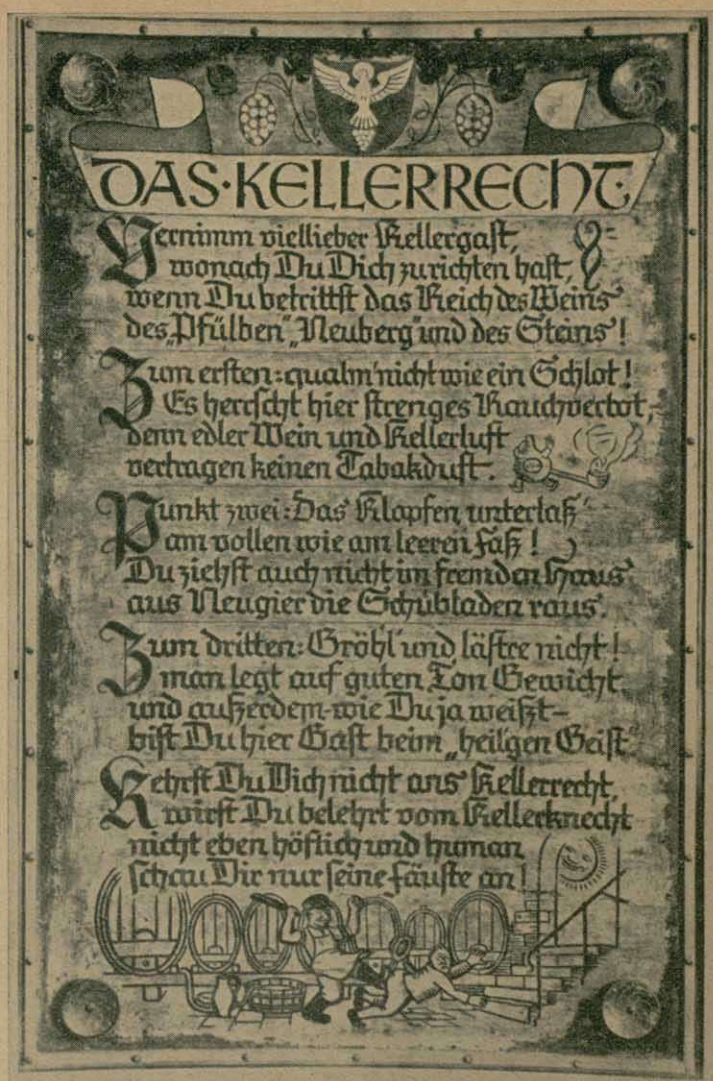 DAS·KELLERRECHT·
Vernimm viellieber Kellergast,
wonach Du Dich zu richten hast,
wenn Du betrittst das Reich des Weins
des „Pfülben“ „Neuberg“ und des Steins!
Zum ersten: qualm' nicht wie ein Schlot!
Es herrscht hier strenges Rauchverbot,
denn edler Wein und Kellerluft
vertragen keinen Tabakduft.
Punkt zwei: Das Klopfen unterlaß'
am vollen wie am leeren Faß!
Du ziehst auch nicht im fremden Haus
aus Neugier die Schubladen raus.
Zum dritten: Gröhl' und lästre nicht!
man legt auf guten Ton Gewicht
und außerdem - wie Du ja weißt -
bist Du hier Gast beim „heil'gen Geist“.
Kehrst Du Dich nicht ans Kellerrecht,
wirst Du belehrt vom Kellerknecht
nicht eben höflich und human
schau Dir nur seine Fäuste an!